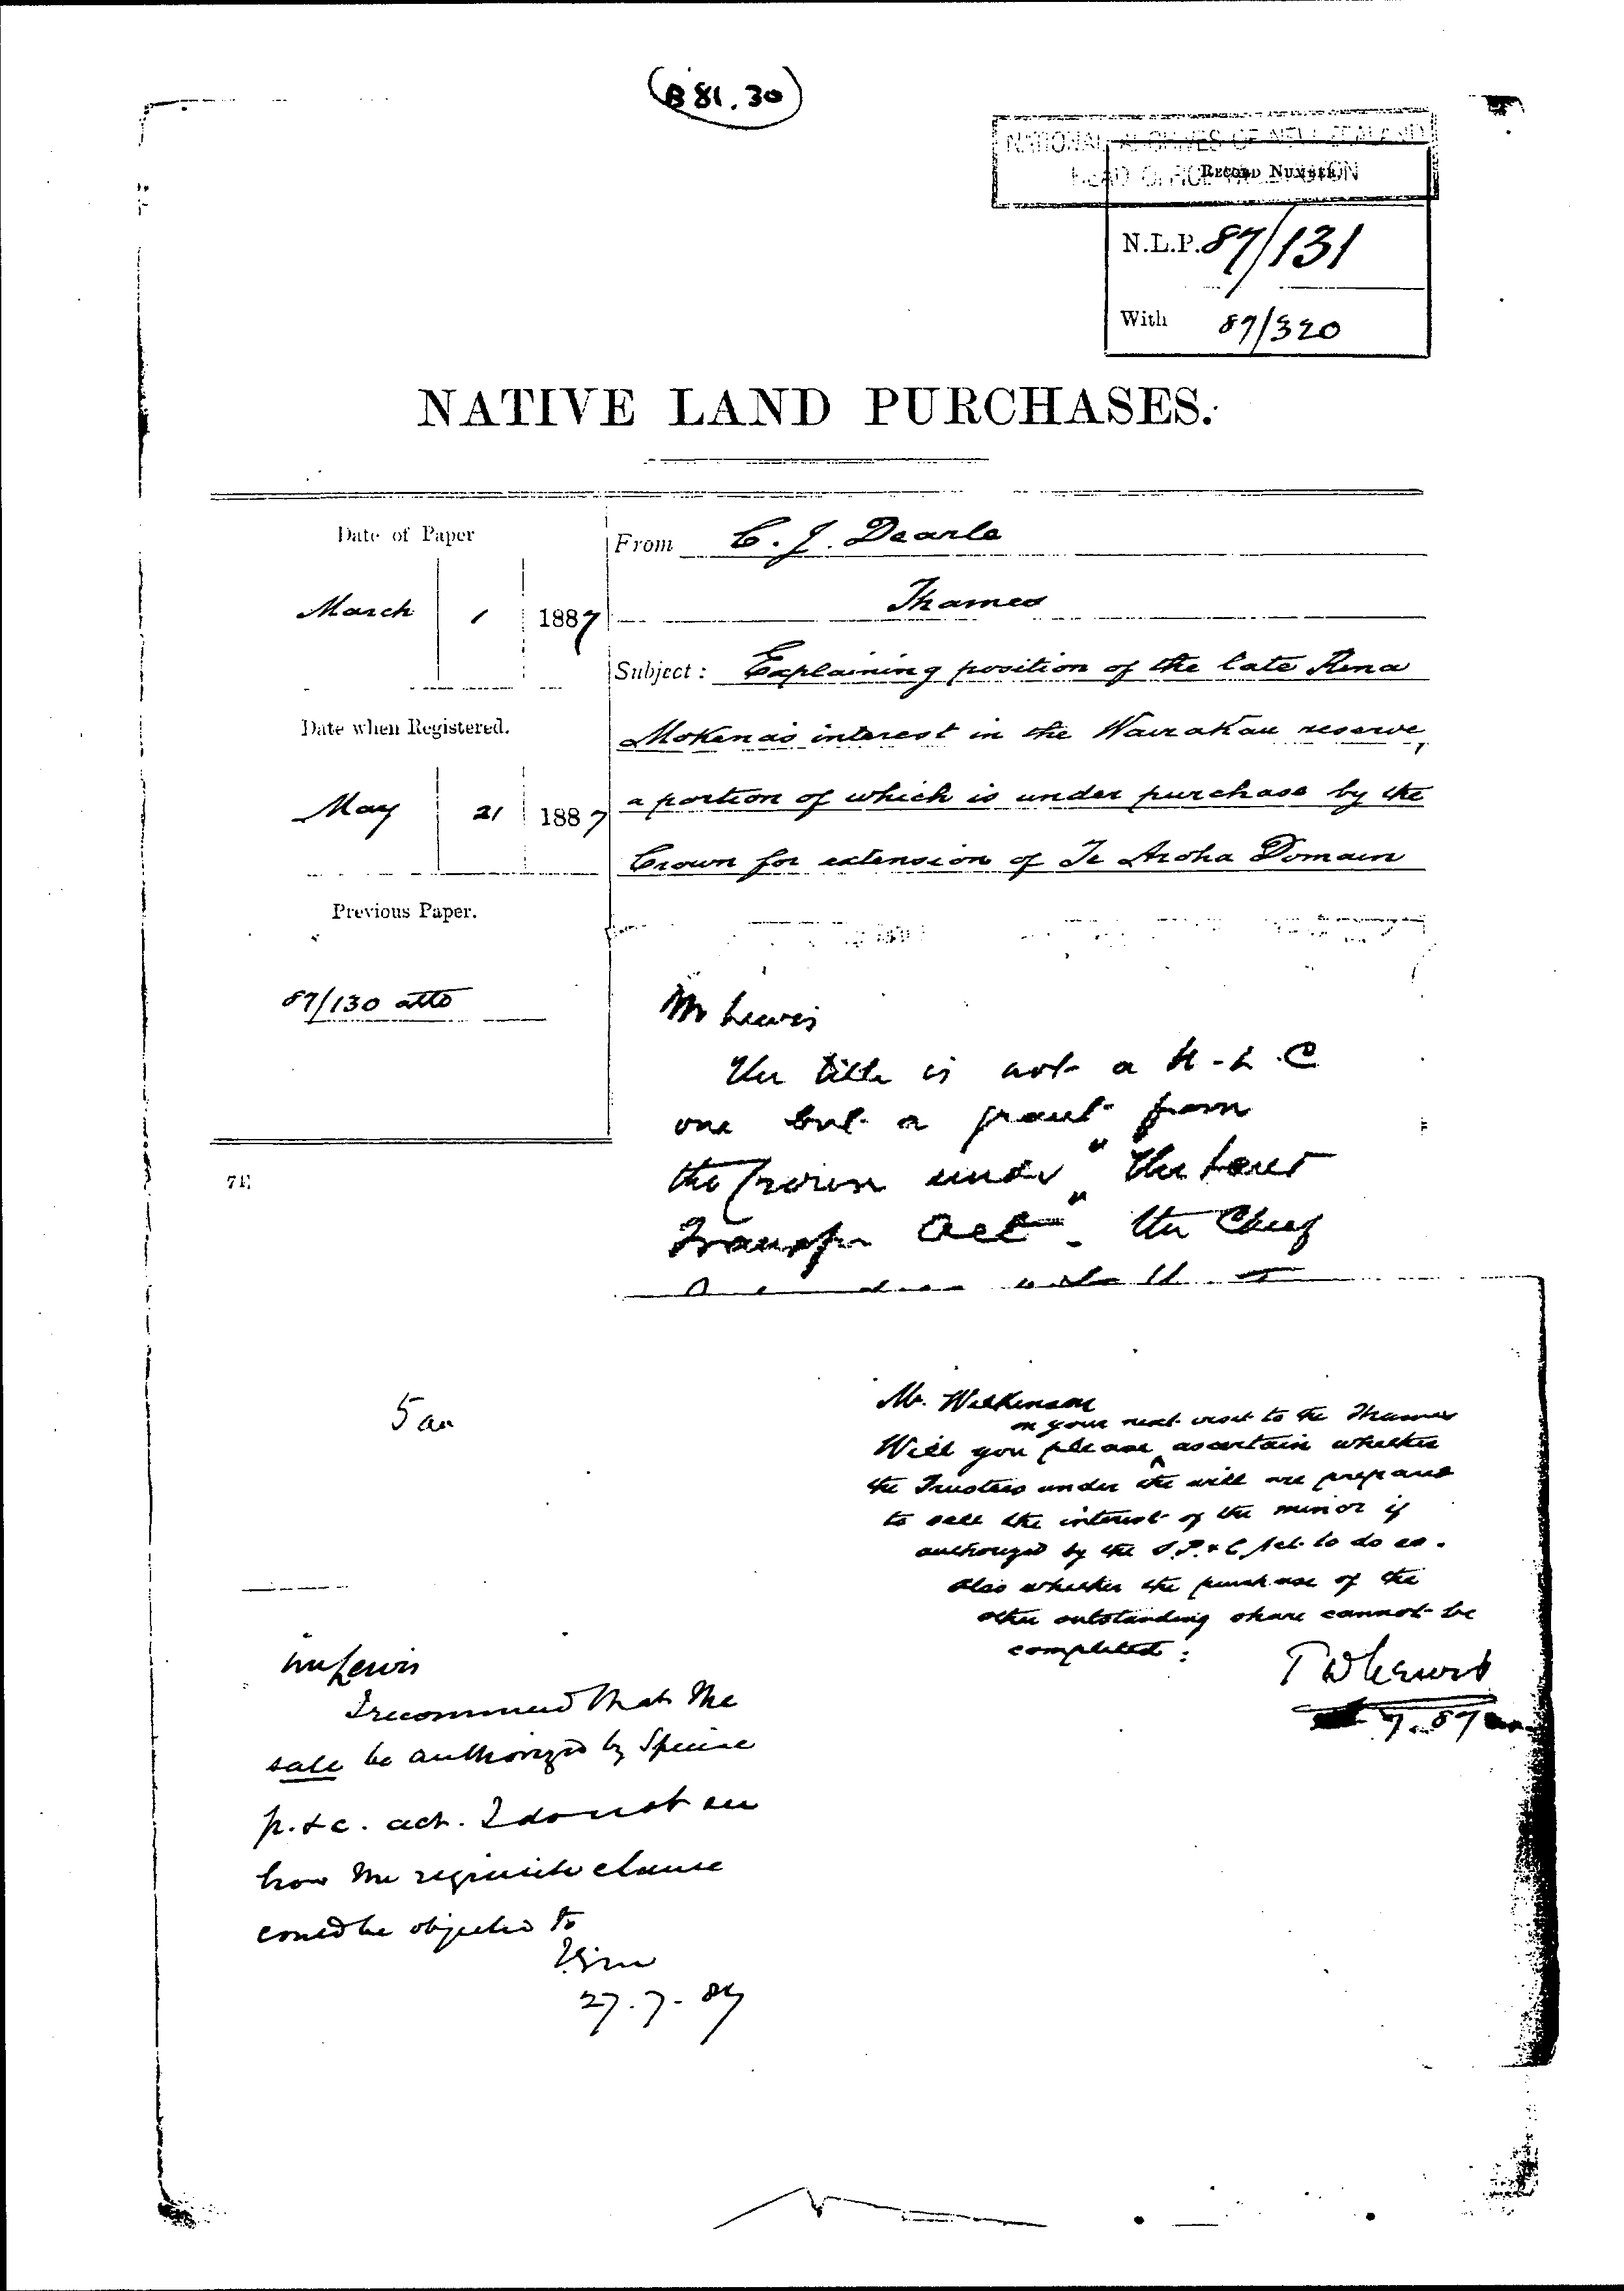 B 81.30
NATIONAL ARCHIVES OF NEW ZEALAND
HEAD OFFICE
RECORD NUMBER
N.L.P. 87/131
With 87/320
NATIVE LAND PURCHASES.
Date of Paper
March 1 1887
Date when Registered.
May 21 1887
Previous Paper.
87/130 atto
From C. J. Dearle
Thames
Subject: Explaining position of the late Rina
Mokena's interest in the Wairakau reserve,
a portion of which is under purchase by the
Crown for extension of Te Aroha Domain
Mr Lewis
The title is not a N-L.C
one but a grant from
the Crown under "The Land
Transfer Act". The Chief
71
5
Mr. Wilkinson
on your next visit to the Thames
Will you please ^ ascertain whether
the Trustees under the will are prepared
to sell the interest of the minor if
authorized by the S.P. & C Act to do so.
Also whether the purchase of the
other outstanding share cannot be
completed:
T W Lewis
7.87
Mr Lewis
I recommend that the
sale be authorized by Special
p. & c. act. I do not see
how the requisite clause
could be objected to
27.7.87